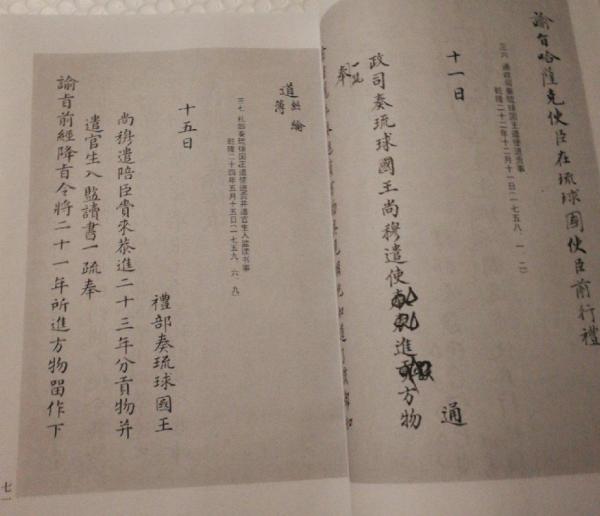 諭旨哈薩克使臣在琉球國使臣前行禮
三六 通政司奏琉球国王遣使进贡事
乾隆二十二年十二月十一日(一七五八、一、二
十一日
通
政司奏琉球國王尚穆遣使進方物
一疏
奉
絲綸
道簿
三七 礼部奏琉球国王遣使进贡并遣官生入监读书事
乾隆二十四年五月十五日(一七五九、六、九)
十五日
禮部奏琉球國王
尚穆遣陪臣賫來恭進二十三年分貢物并
遣官生入監讀書一疏奉
諭旨前經降旨令將二十一年所進方物留作下
七一